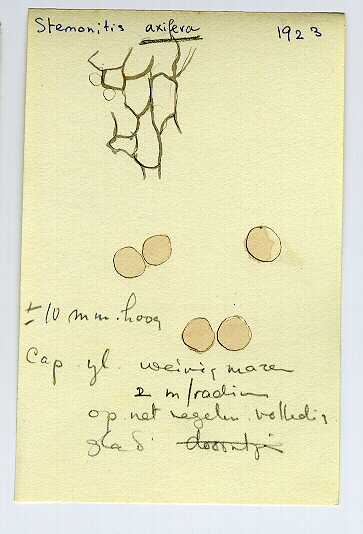 Stemonitis axifera 1923
± 10 mm. hoog
Cap. gl. weinig mazen
2 m/radius
op. net regelm. volledig.
glad